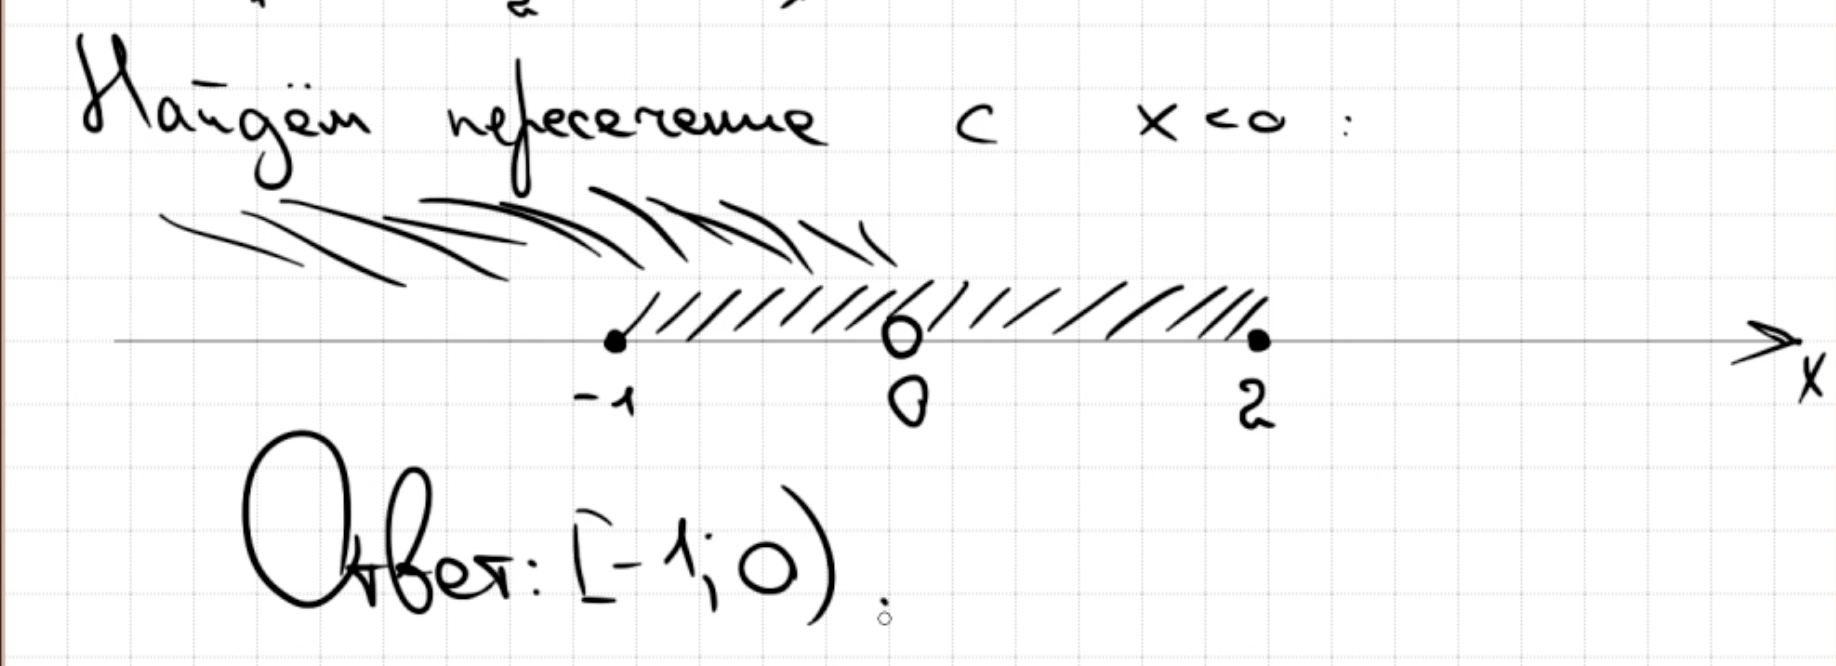 Найдём пересечение с x<0:
-1 0 2 x
Ответ: [-1; 0).